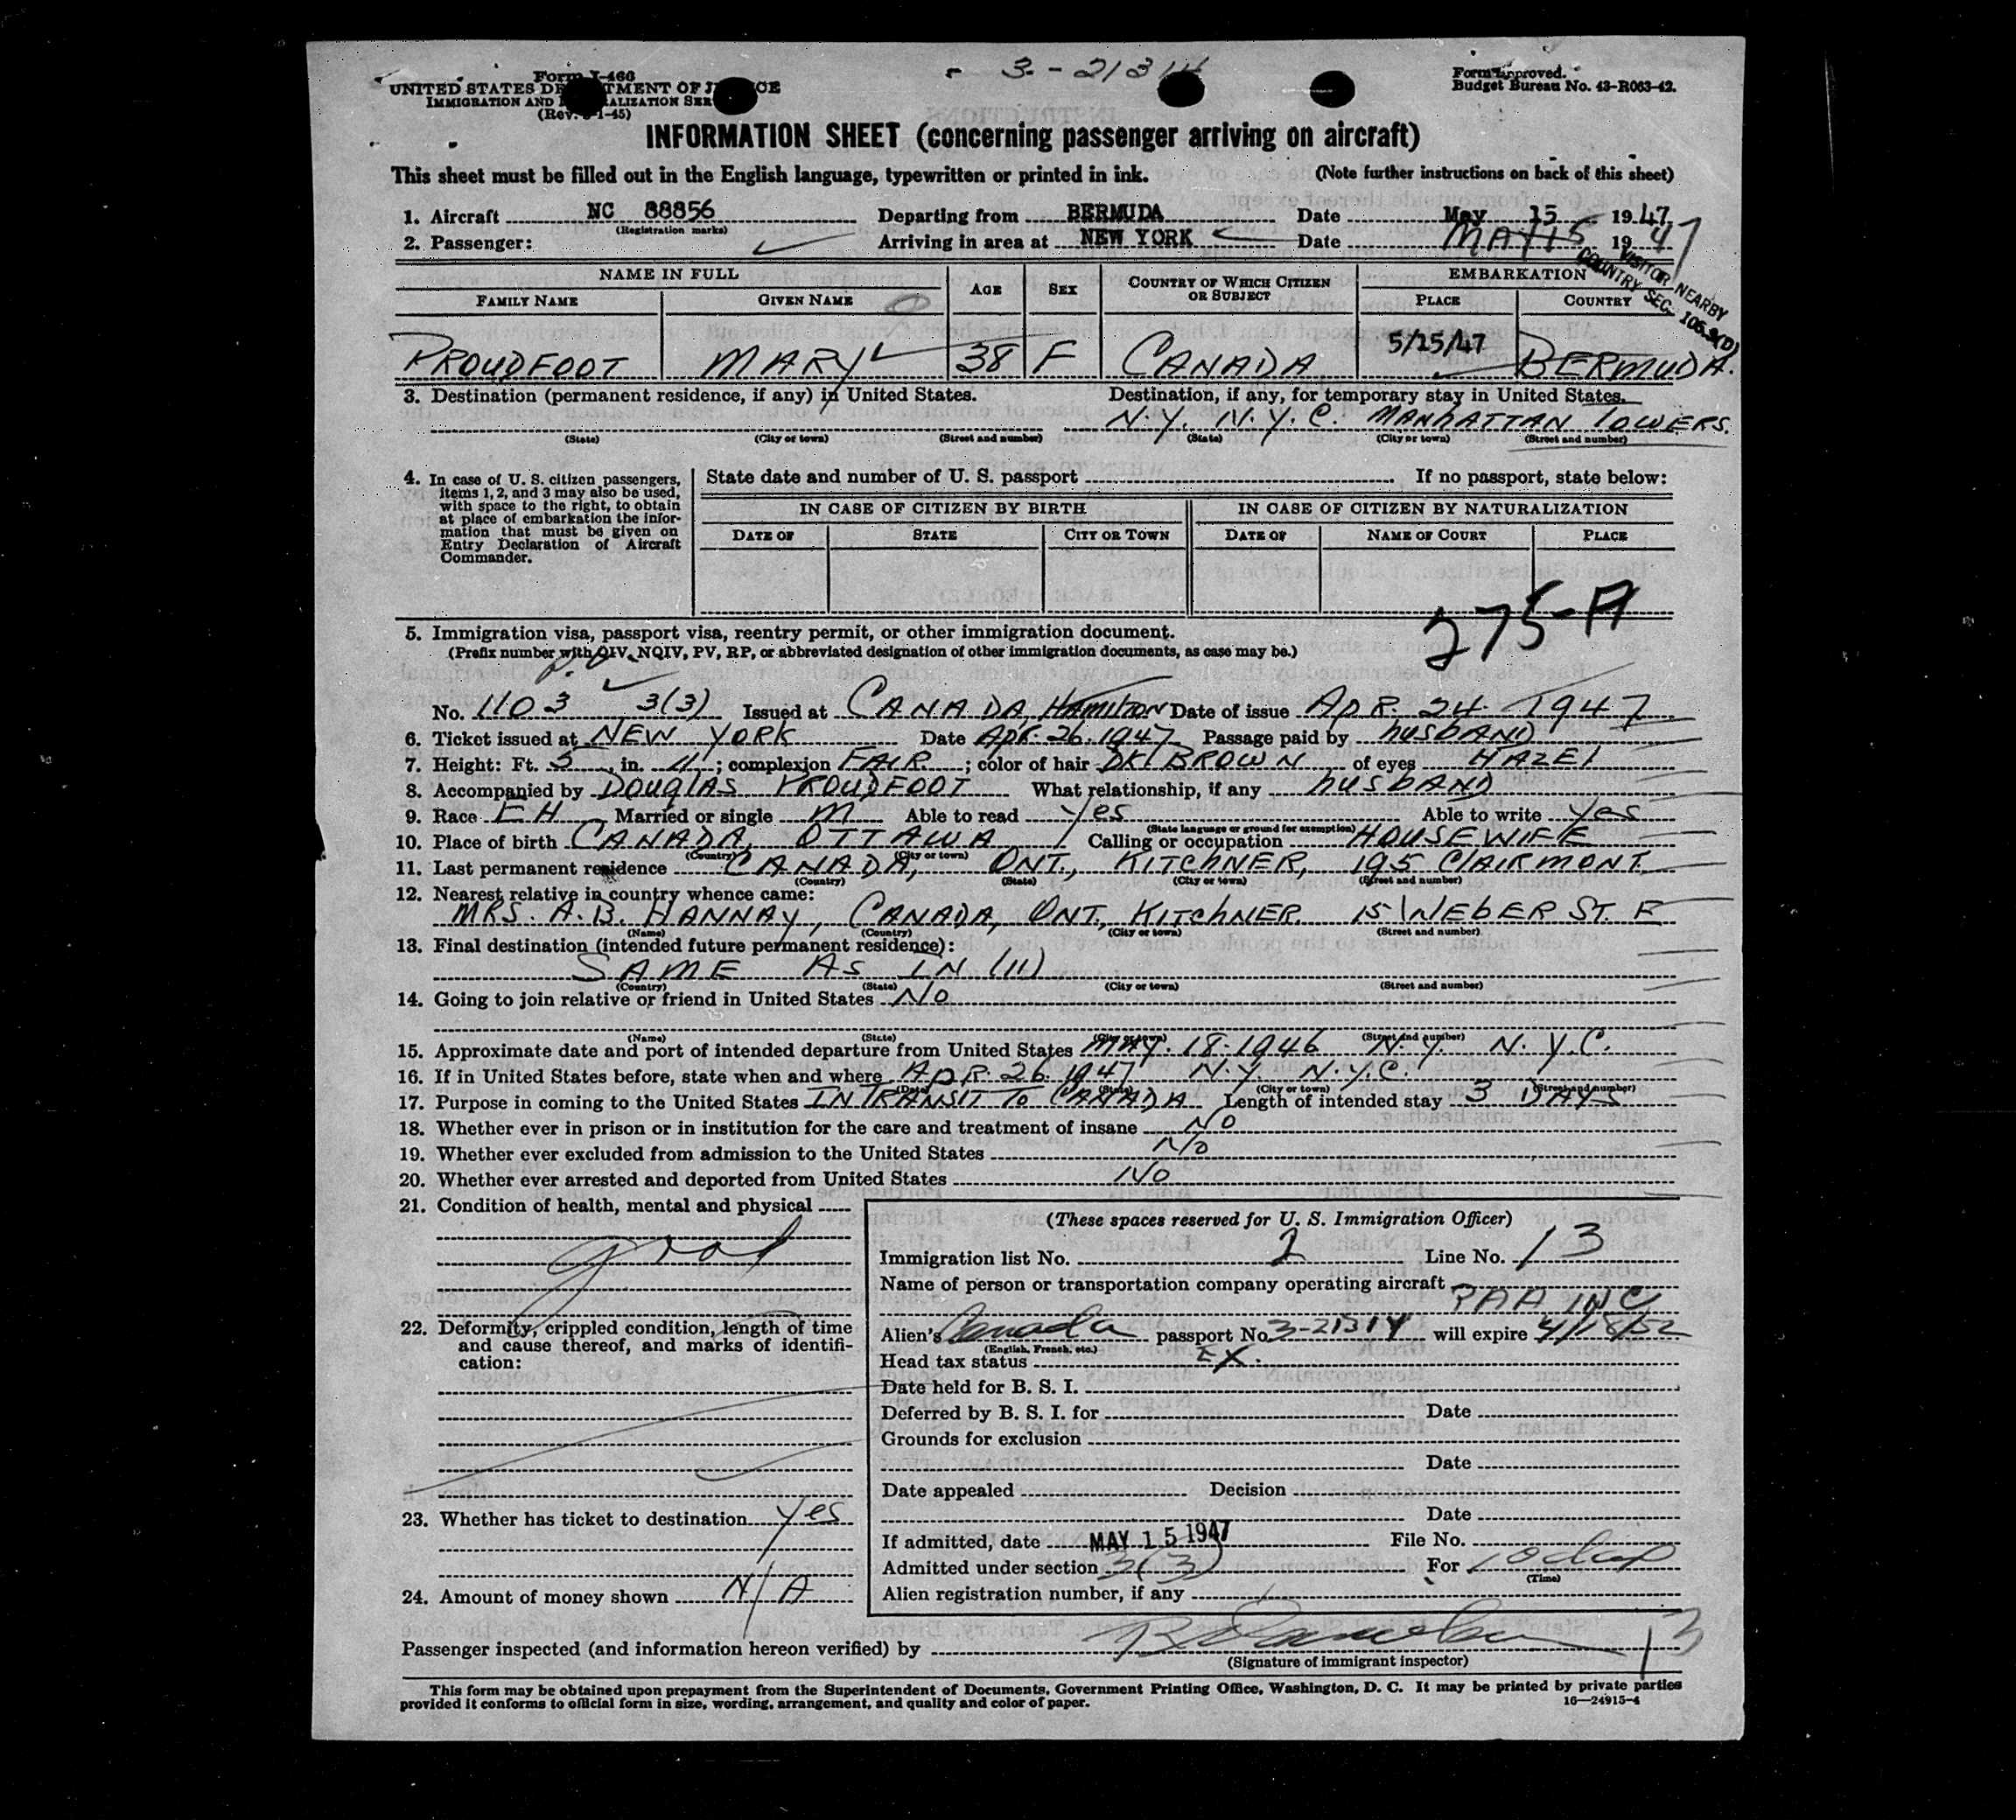 3-21314
Form I-466
UNITED STATES DE TMENT OF J CE
IMMIGRATION AND ALIZATION SER
(Rev. -1-45)
Form approved.
Budget Bureau No. 43-R063-42.
INFORMATION SHEET (concerning passenger arriving on aircraft)
This sheet must be filled out in the English language, typewritten or printed in ink. (Note further instructions on back of this sheet)
1. Aircraft NC 88856 Departing from BERMUDA Date May 15 1947
(Registration marks)
2. Passenger: Arriving in area at NEW YORK Date MAY 15 1947
VISITOR NEARBY
COUNTRY SEC.
NAME IN FULL AGE SEX COUNTRY OF WHICH CITIZEN OR SUBJECT EMBARKATION
FAMILY NAME GIVEN NAME PLACE COUNTRY
PROUDFOOT MARY 38 F CANADA 5/25/47 BERMUDA.
3. Destination (permanent residence, if any) in United States. Destination, if any, for temporary stay in United States.
N.Y. N.Y.C. MANHATTAN TOWERS.
(State) (City or town) (Street and number) (State) (City or town) (Street and number)
4. In case of U. S. citizen passengers, items 1, 2, and 3 may also be used, with space to the right, to obtain at place of embarkation the information that must be given on Entry Declaration of Aircraft Commander.
State date and number of U. S. passport If no passport, state below:
IN CASE OF CITIZEN BY BIRTH IN CASE OF CITIZEN BY NATURALIZATION
DATE OF STATE CITY OR TOWN DATE OF NAME OF COURT PLACE
275-A
5. Immigration visa, passport visa, reentry permit, or other immigration document.
(Prefix number with QIV, NQIV, PV, RP, or abbreviated designation of other immigration documents, as case may be.)
P.V.
No. 1103 3(3) Issued at CANADA, Hamilton Date of issue APR. 24. 1947
6. Ticket issued at NEW YORK Date Apr. 26. 1947 Passage paid by husbAND
7. Height: Ft. 5 in. 4; complexion FAIR; color of hair DK BROWN of eyes HAZEl
8. Accompanied by DOUGLAS PROUDFOOT What relationship, if any husbAND
9. Race EH Married or single M Able to read yes Able to write yes
(State language or ground for exemption)
10. Place of birth CANADA, OTTAWA Calling or occupation HOUSEWIFE
(Country) (City or town)
11. Last permanent residence CANADA, ONT., KITCHNER, 195 ClAIRMONT.
(Country) (State) (City or town) (Street and number)
12. Nearest relative in country whence came:
MRS. A.B. HANNAY, CANADA, ONT., KITCHNER. 15 WEBER ST. E
(Name) (Country) (City or town) (Street and number)
13. Final destination (intended future permanent residence):
SAME AS IN (11)
(Country) (State) (City or town) (Street and number)
14. Going to join relative or friend in United States No
(Name) (State) (City or town) (Street and number)
15. Approximate date and port of intended departure from United States MAY. 18. 1946 N.Y. N.Y.C.
16. If in United States before, state when and where APR. 26. 1947 N.Y. N.Y.C.
(Date) (State) (City or town) (Street and number)
17. Purpose in coming to the United States IN TRANSIT To CANADA Length of intended stay 3 DAYS
18. Whether ever in prison or in institution for the care and treatment of insane No
19. Whether ever excluded from admission to the United States No
20. Whether ever arrested and deported from United States No
21. Condition of health, mental and physical
good
22. Deformity, crippled condition, length of time and cause thereof, and marks of identification:
23. Whether has ticket to destination yes
24. Amount of money shown N/A
(These spaces reserved for U. S. Immigration Officer)
Immigration list No. 2 Line No. 13
Name of person or transportation company operating aircraft
PAA INC
Alien's Canada passport No. 3-21314 will expire 4/18/52
(English, French, etc.)
Head tax status EX.
Date held for B. S. I.
Deferred by B. S. I. for Date
Grounds for exclusion
Date
Date appealed Decision
Date
If admitted, date MAY 15 1947 File No.
Admitted under section 3(3) For 10 days
(Time)
Alien registration number, if any
Passenger inspected (and information hereon verified) by
13
(Signature of immigrant inspector)
This form may be obtained upon prepayment from the Superintendent of Documents, Government Printing Office, Washington, D. C. It may be printed by private parties
provided it conforms to official form in size, wording, arrangement, and quality and color of paper. 16—24915-4